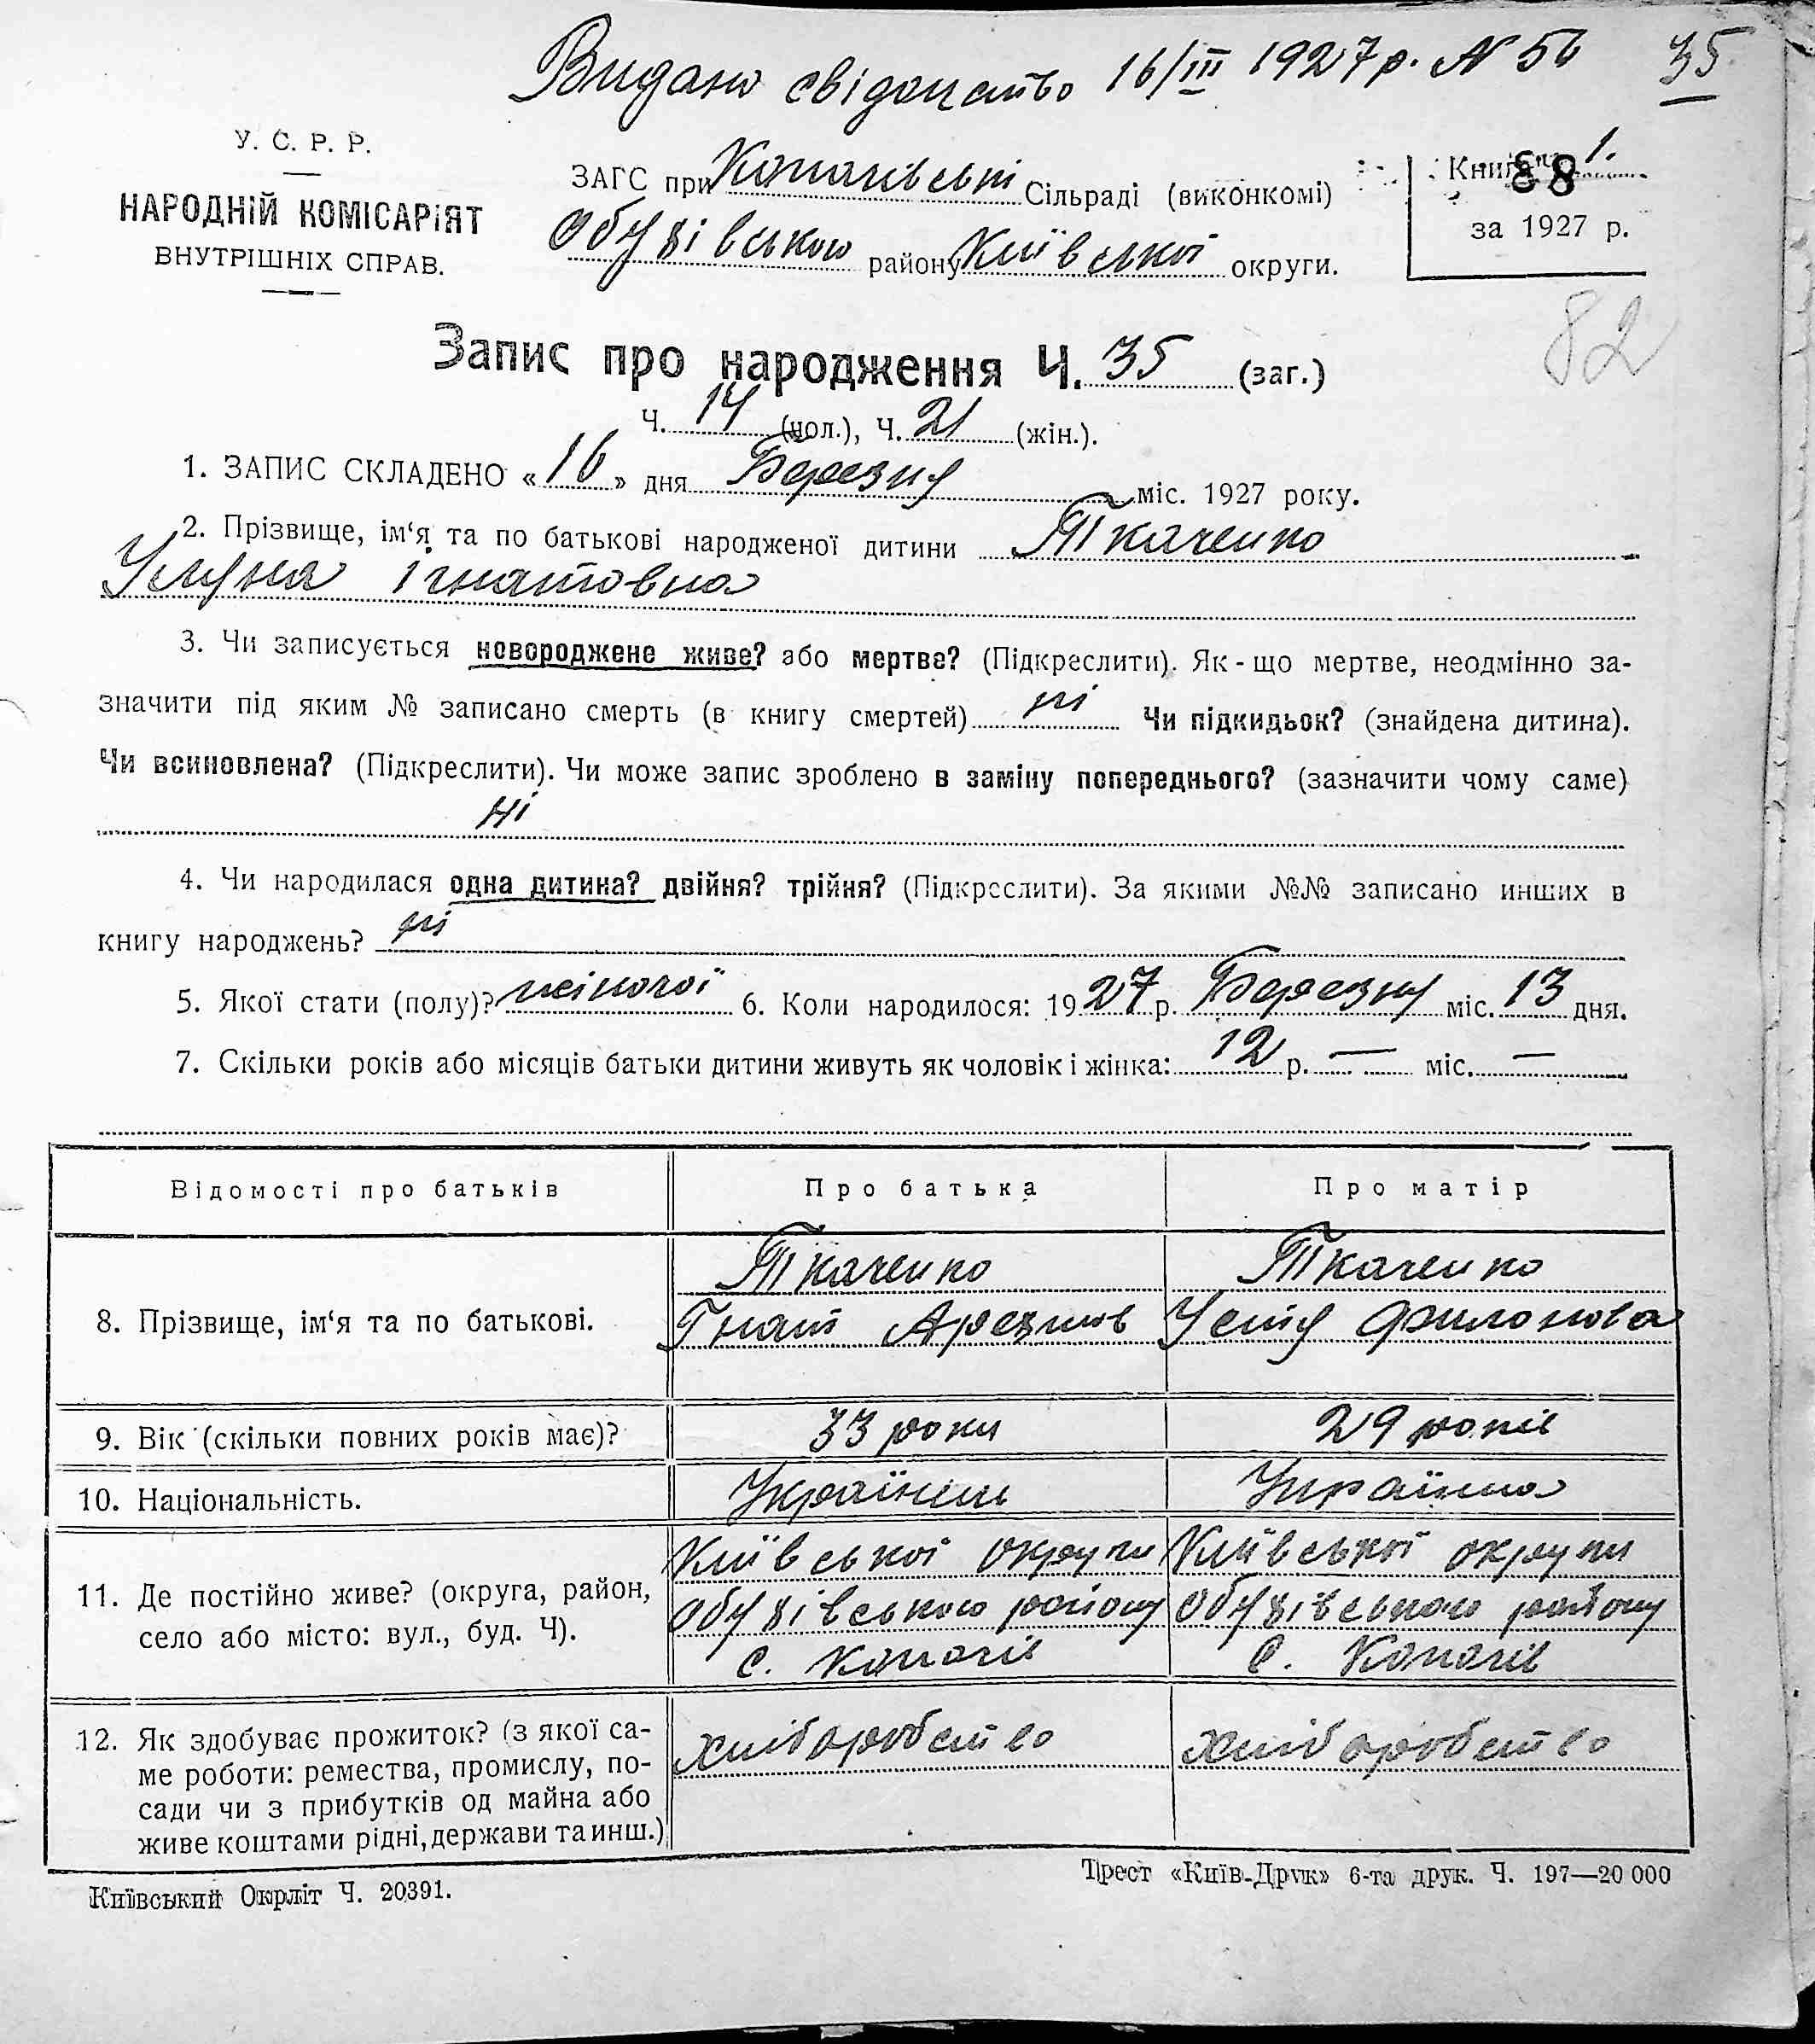 Видано свідоцтво 16/III 1927 р. N 56 35
У. С. Р. Р.
НАРОДНІЙ КОМІСАРІЯТ
ВНУТРІШНІХ СПРАВ.
ЗАГС при Копачівські Сільраді (виконкомі)
Обухівського району Київської округи.
Книга 1.
88
за 1927 р.
82
Запис про народження Ч. 35 (заг.)
Ч. 14 (чол.), Ч. 21 (жін.).
1. ЗАПИС СКЛАДЕНО «16» дня Березня міс. 1927 року.
2. Прізвище, ім'я та по батькові народженої дитини Ткаченко
Ігнатовна
3. Чи записується новороджене живе? або мертве? (Підкреслити). Як-що мертве, неодмінно за-
значити під яким № записано смерть (в книгу смертей) ні Чи підкидьок? (знайдена дитина).
Чи всиновлена? (Підкреслити). Чи може запис зроблено в заміну попереднього? (зазначити чому саме)
ні
4. Чи народилася одна дитина? двійня? трійня? (Підкреслити). За якими №№ записано инших в
книгу народжень? ні
5. Якої стати (полу)? жіночої 6. Коли народилося: 1927 р. Березня міс. 13 дня.
7. Скільки років або місяців батьки дитини живуть як чоловік і жінка: 12 р. — міс. —
Відомості про батьків Про батька Про матір
Ткаченко Ткаченко
8. Прізвище, ім'я та по батькові. Гнат Устя Филонова
9. Вік (скільки повних років має)? 33 роки 29 років
10. Національність. Українець Українка
Київської округи Київської округи
11. Де постійно живе? (округа, район, Обухівського району Обухівського району
село або місто: вул., буд. Ч). с. Копачів с. Копачів
12. Як здобуває прожиток? (з якої са- хліборобство хліборобство
ме роботи: ремества, промислу, по-
сади чи з прибутків од майна або
живе коштами рідні, держави та инш.)
Київський Окрліт Ч. 20391.
Трест «Київ-Друк» 6-та друк. Ч. 197—20 000